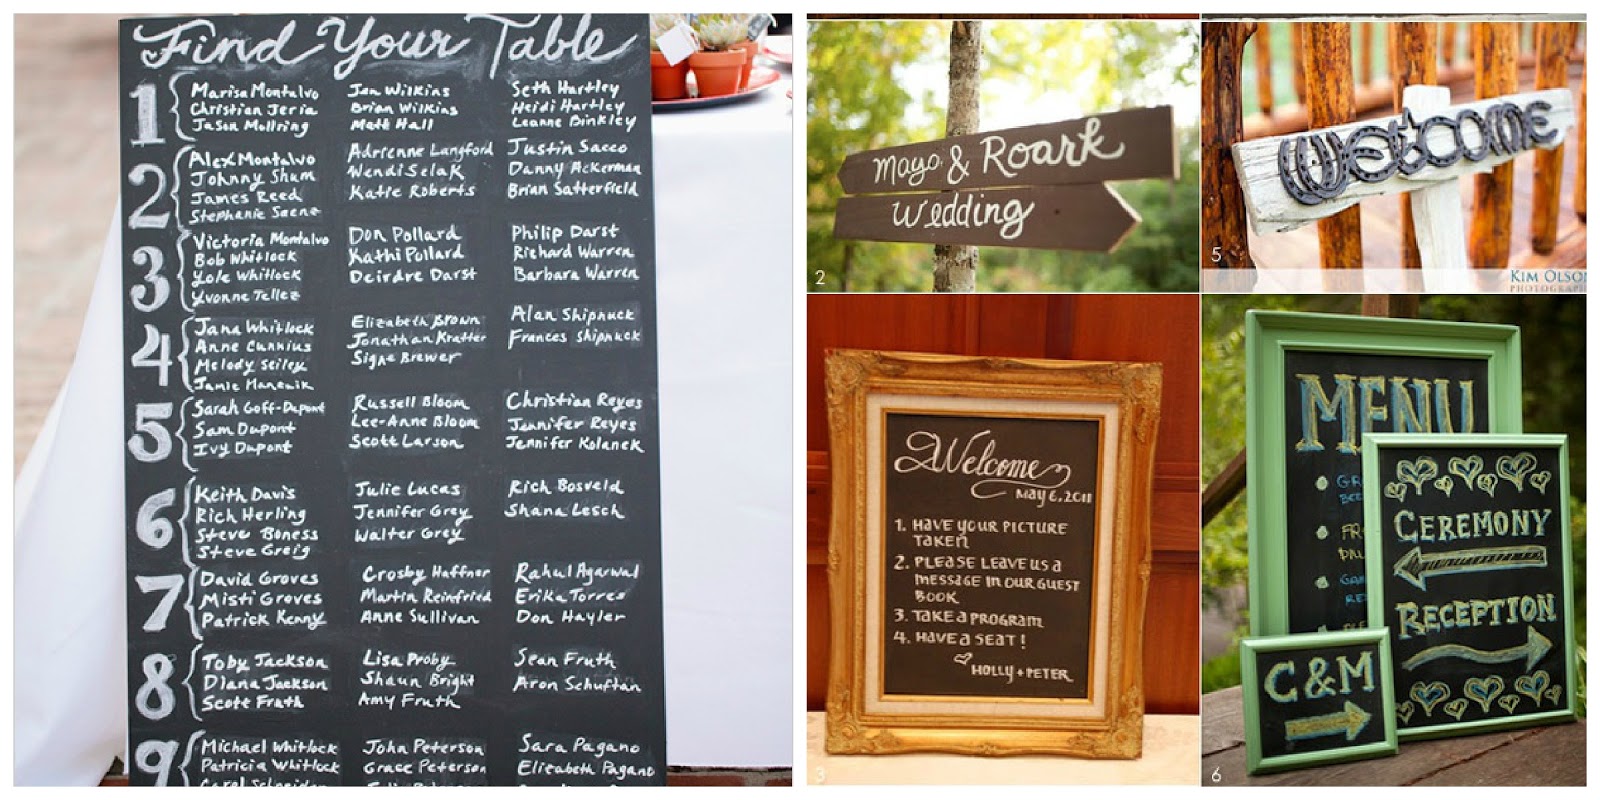 Find Your Table
1
Marisa Montalvo
Christian Jeria
Jason Mollring
Jan Wilkins
Brian Wilkins
Matt Hall
Seth Hartley
Heidi Hartley
Leanne Binkley
2
Alex Montalvo
Johnny Shum
James Reed
Stephanie Saenz
Adrienne Langford
Wendi Selak
Katie Roberts
Justin Sacco
Danny Ackerman
Brian Satterfield
3
Victoria Montalvo
Bob Whitlock
Yole Whitlock
Yvonne Tellez
Don Pollard
Kathi Pollard
Deirdre Darst
Philip Darst
Richard Warren
Barbara Warren
4
Jana Whitlock
Anne Cunnius
Melody Seiley
Jamie
Elizabeth Brown
Jonathan Kratter
Signe Brewer
Alan Shipnuck
Frances Shipnuck
5
Sarah Goff-Dupont
Sam Dupont
Ivy Dupont
Russell Bloom
Lee-Anne Bloom
Scott Larson
Christian Reyes
Jennifer Reyes
Jennifer Kolanek
6
Keith Davis
Rich Herling
Steve Boness
Steve Greig
Julie Lucas
Jennifer Grey
Walter Grey
Rich Bosveld
Shana Lesch
7
David Groves
Misti Groves
Patrick Kenny
Crosby Haffner
Martin Reinfried
Anne Sullivan
Rahul Agarwal
Erika Torres
Don Hayler
8
Toby Jackson
Diana Jackson
Scott Fruth
Lisa Proby
Shaun Bright
Amy Fruth
Sean Fruth
Aron Schuftan
9
Michael Whitlock
Patricia Whitlock
Carol Schneider
John Peterson
Grace Peterson
Sara Pagano
Elizabeth Pagano
Mayo & Roark
Wedding
2
Welcome
5
KIM OLSON
PHOTOGRAPH
Welcome
May 6, 2011
1. HAVE YOUR PICTURE
TAKEN
2. PLEASE LEAVE US A
MESSAGE IN OUR GUEST
BOOK
3. TAKE A PROGRAM
4. HAVE A SEAT!
HOLLY + PETER
3
MENU
CEREMONY
RECEPTION
C&M
6